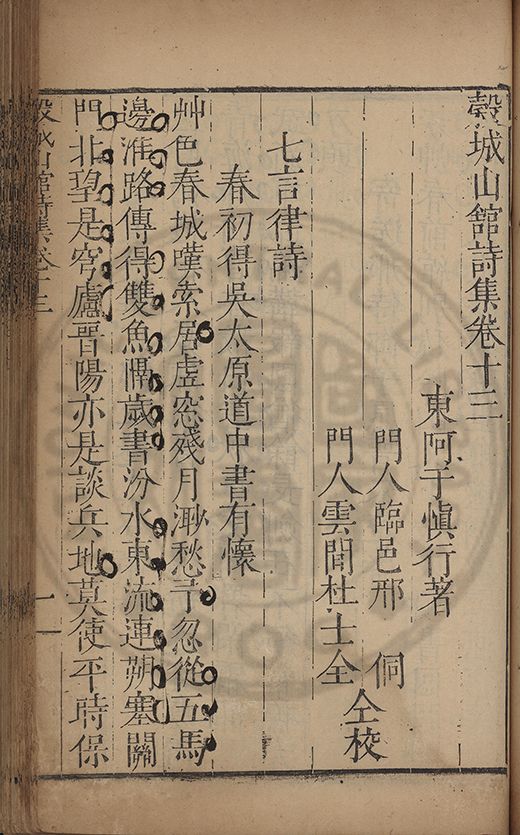 糓城山舘詩集卷十三
東阿于慎行著
門人臨邑邢　侗
門人雲間杜士全
仝校
七言律詩
春初得吳太原道中書有懷
艸色春城嘆索居虛窓殘月渺愁予忽從五馬
邊淮路傳得雙魚隔歲書汾水東流連朔塞關
門北望是穹廬晋陽亦是談兵地莫使平時保
穀城山舘詩集卷十三
一